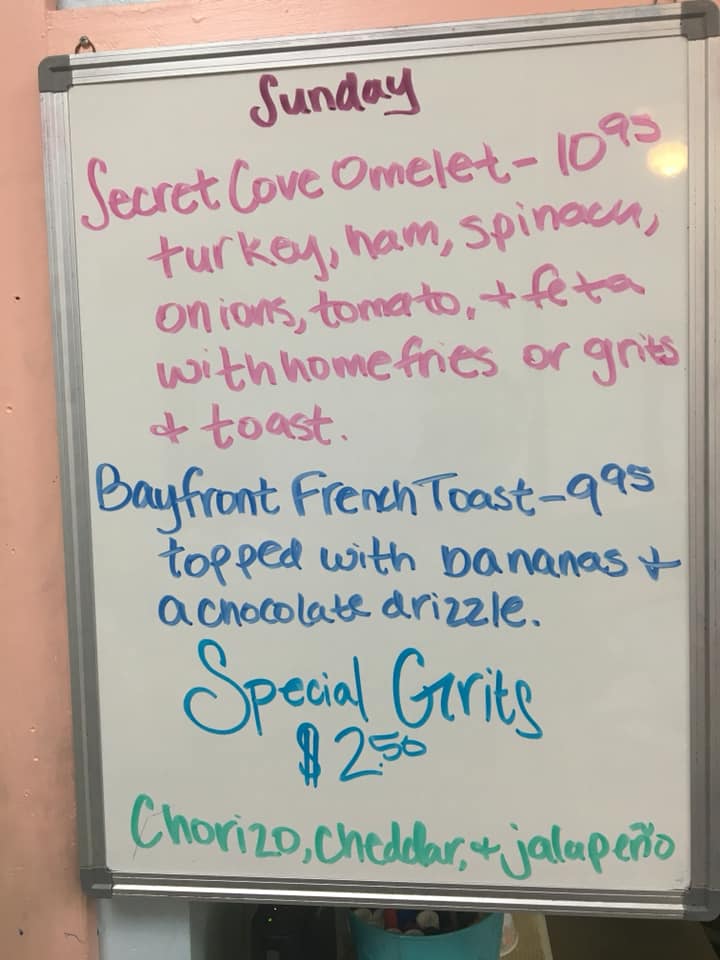 Sunday
Secret Cove Omelet - 10 95
turkey, ham, spinach,
onions, tomato, + feta
with homefries or grits
+ toast.
Bayfront French Toast - 9 95
topped with bananas +
a chocolate drizzle.
Special Grits
$2.50
Chorizo, cheddar, + jalapeño